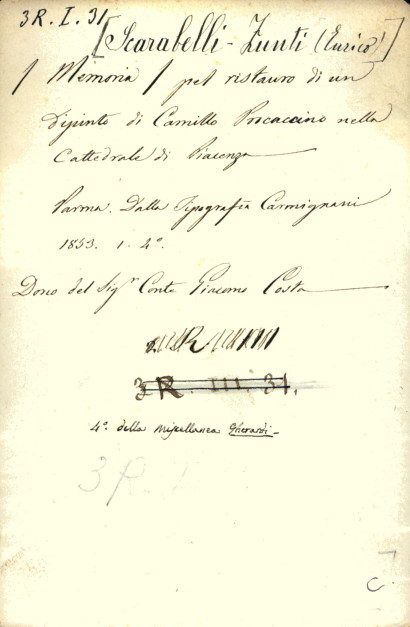 3R. I. 31
[Scarabelli-Zunti (Enrico)]
[Memoria] pel ristauro di un
dipinto di Camillo Procaccino nella
Cattedrale di Piacenza
Parma. Dalla Tipografia Carmignani
1853. 1. 4°.
Dono del Sigr Conte Giacomo Costa
3R. III. 31.
4°. della miscellanea Gherardi
3R. I
C.